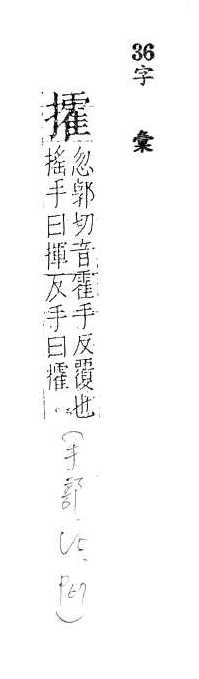 36字 彙
攉
忽郭切音霍手反覆也
搖手曰揮反手曰攉
(手部
P67)